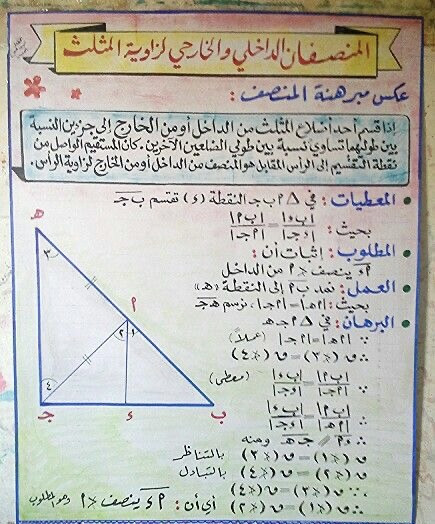 المنصفان الداخلي والخارجي لزاوية المثلث
عكس مبرهنة المنصف :
إذا قسم أحد أضلاع المثلث من الداخل أو من الخارج إلى جزئين النسبة
بين طوليهما تساوي نسبة بين طولي الضلعين الآخرين، كان المستقيم الواصل من
نقطة التقسيم إلى الرأس المقابل هو المنصف من الداخل أو من الخارج لزاوية الرأس.
المعطيات : في △ م ب جـ النقطة (ء) تقسم ب جـ
بحيث : |ب ء| / |ء جـ| = |م ب| / |م جـ|
المطلوب : إثبات أن :
م ء ينصف ∡م من الداخل
العمل : نمد ب م إلى النقطة «هـ»
بحيث : |م هـ| = |م جـ| ، نرسم هـ جـ
البرهان : في △ م جـ هـ
∵ |م هـ| = |م جـ| (عملاً)
∴ ق (∡٣) = ق (∡٤)
∵ |م ب| / |م جـ| = |ب ء| / |ء جـ| (معطى)
∴ |م ب| / |م هـ| = |ب ء| / |ء جـ|
∴ ء م // جـ هـ ومنه
ق (∡١) = ق (∡٣) بالتناظر
ق (∡٢) = ق (∡٤) بالتبادل
∵ ق (∡٣) = ق (∡٤)
∴ ق (∡١) = ق (∡٢) أي أن : م ء ينصف ∡م وهو المطلوب
هـ
٣
م
٢ ١
٤
جـ ء ب